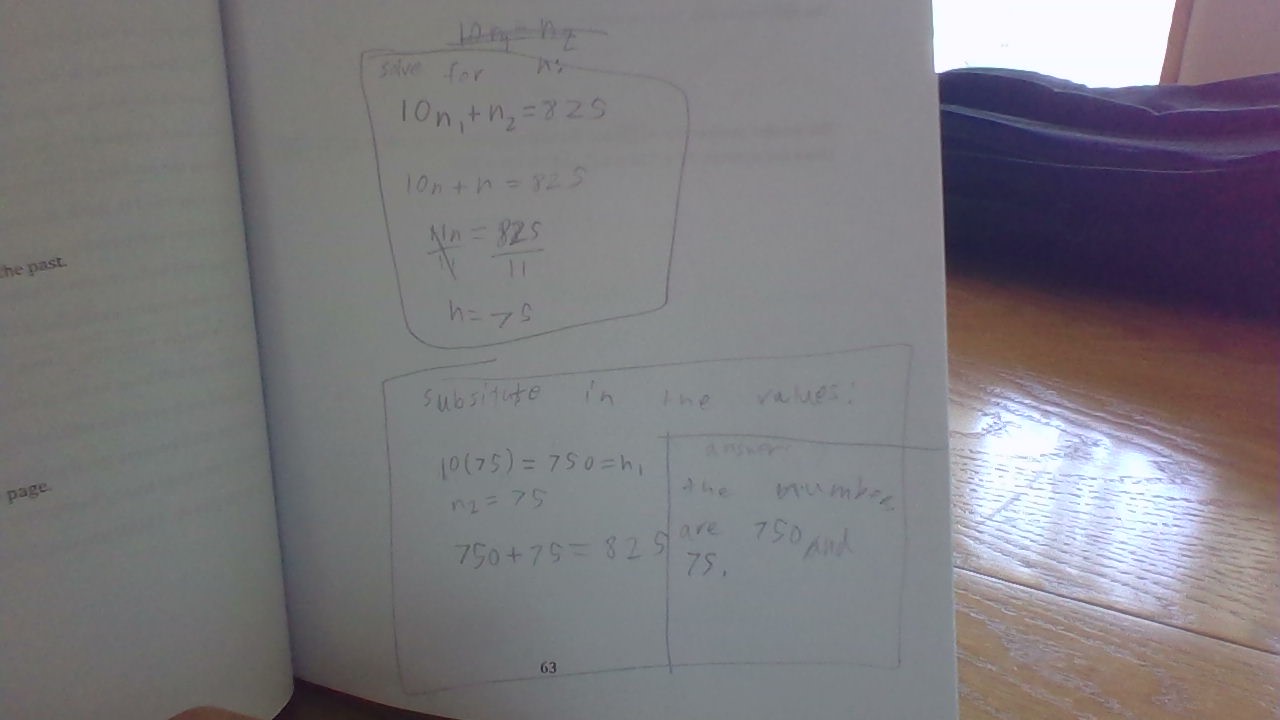 he past.
page.
10n₁ = n₂
solve for n:
10n₁ + n₂ = 825
10n + n = 825
11n = 825
11 11
n = 75
subsitute in the values:
10(75) = 750 = n₁
n₂ = 75
750 + 75 = 825
answer:
the numbers
are 750 and
75.
63